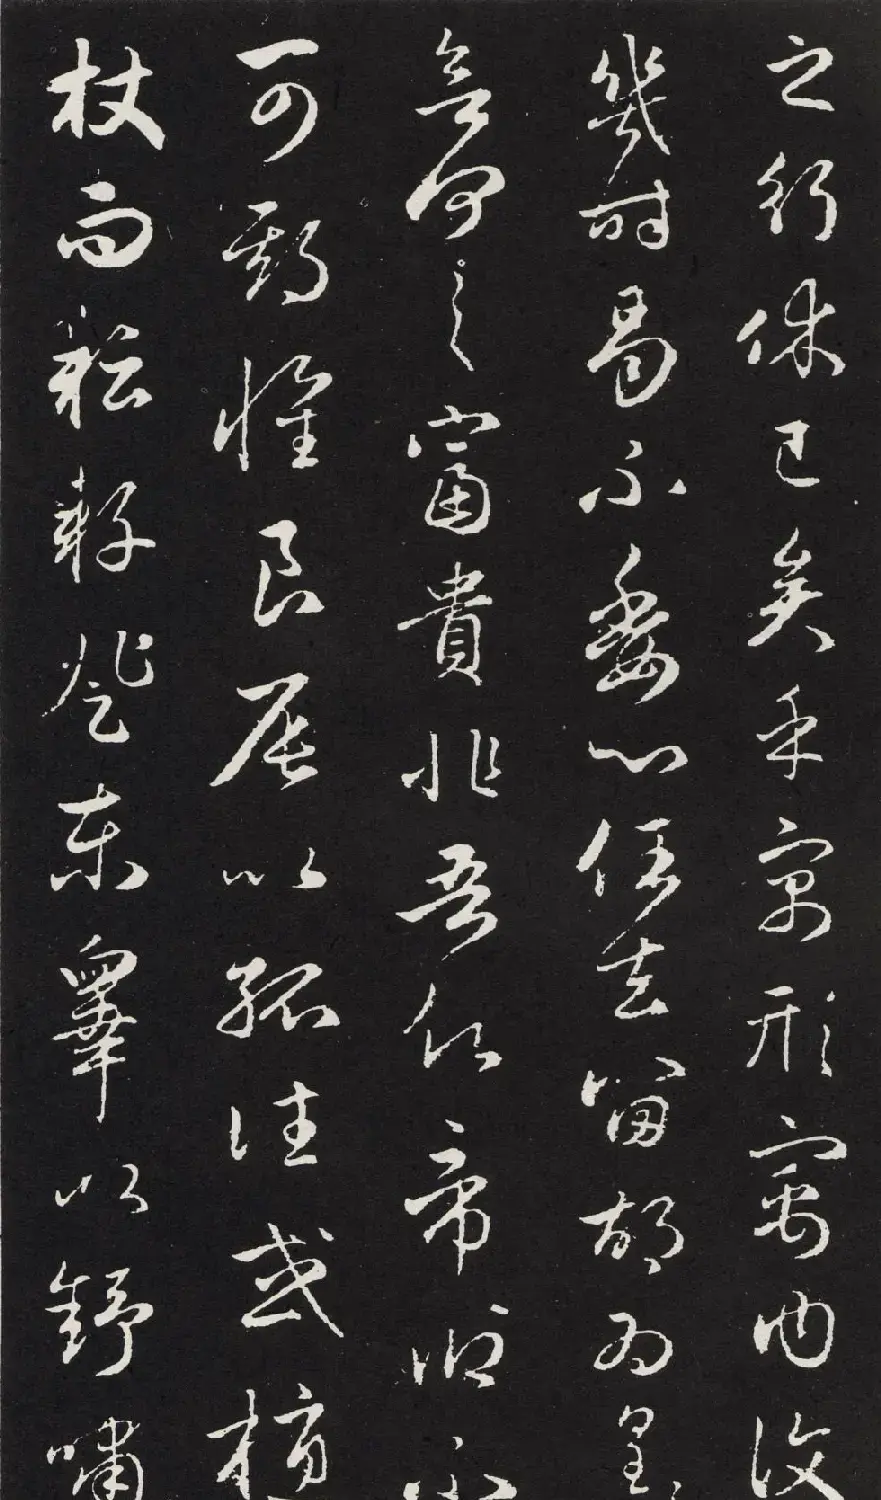 之行休已矣乎寓形寓內復
幾時曷不委心任去留胡為皇
何之富貴非吾帝鄉不
可期懷良辰以孤往或植
杖而耘耔登東皋以舒嘯